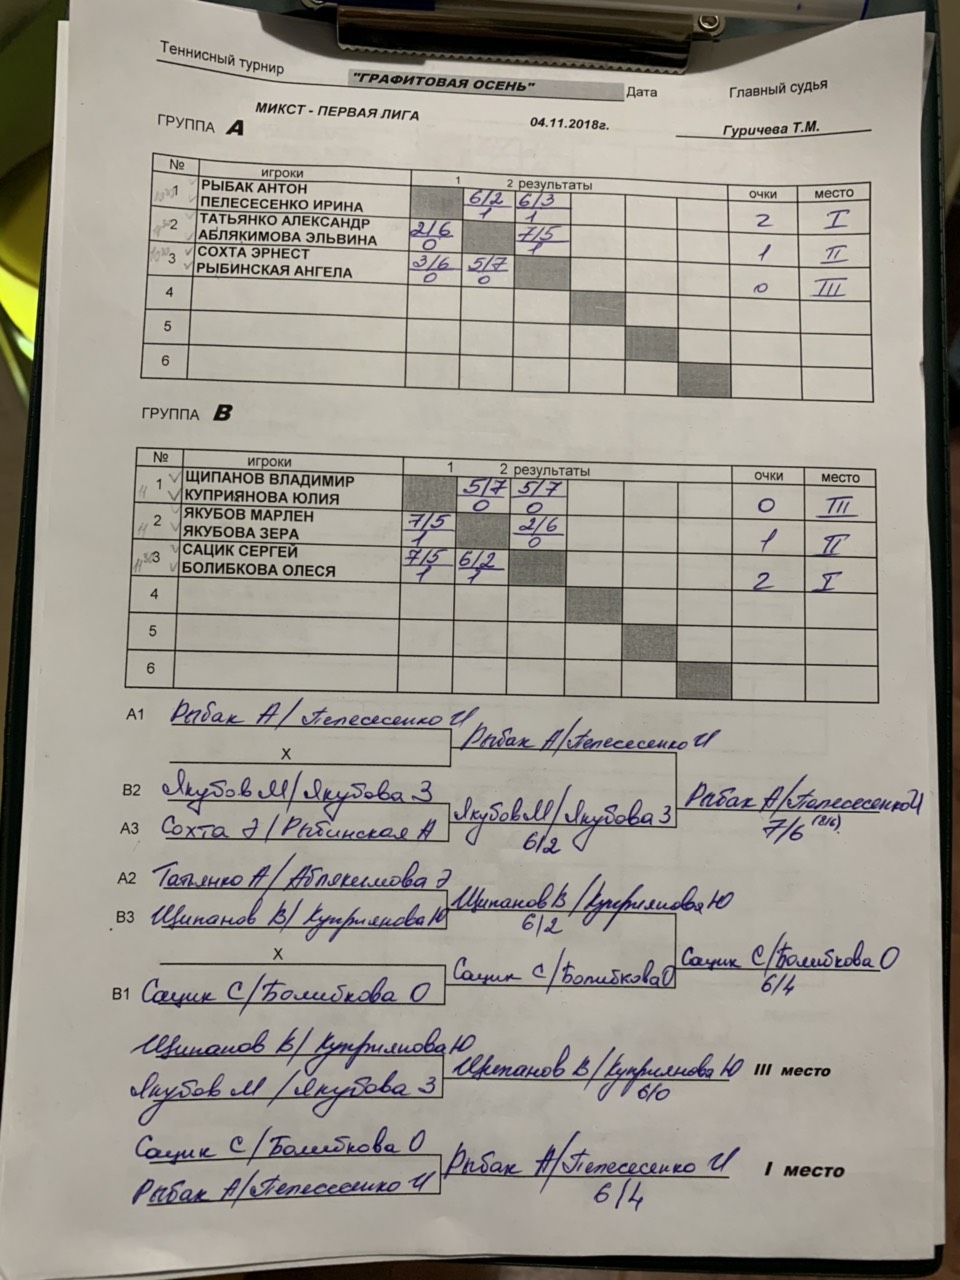 Теннисный турнир "ГРАФИТОВАЯ ОСЕНЬ" Дата Главный судья
МИКСТ - ПЕРВАЯ ЛИГА 04.11.2018г. Гуричева Т.М.
ГРУППА А
№ игроки 1 2 результаты очки место
1 РЫБАК АНТОН 6/2 6/3
ПЕЛЕСЕСЕНКО ИРИНА 1 1 2 I
2 ТАТЬЯНКО АЛЕКСАНДР 2/6 7/5
АБЛЯКИМОВА ЭЛЬВИНА 0 1 1 II
3 СОХТА ЭРНЕСТ 3/6 5/7
РЫБИНСКАЯ АНГЕЛА 0 0 0 III
4
5
6
ГРУППА В
№ игроки 1 2 результаты очки место
1 ЩИПАНОВ ВЛАДИМИР 5/7 5/7
КУПРИЯНОВА ЮЛИЯ 0 0 0 III
2 ЯКУБОВ МАРЛЕН 7/5 2/6
ЯКУБОВА ЗЕРА 1 0 1 II
3 САЦИК СЕРГЕЙ 7/5 6/2
БОЛИБКОВА ОЛЕСЯ 1 1 2 I
4
5
6
А1 Рыбак А/Пелесесенко И
Рыбак А/Пелесесенко И
Х
В2 Якубов М/Якубова З
Рыбак А/Пелесесенко И
7/6 (8/6)
Якубов М/Якубова З
6/2
А3 Сохта Э/Рыбинская А
А2 Татьянко А/Аблякимова Э
Щипанов В/Куприянова Ю
6/2
В3 Щипанов В/Куприянова Ю
Сацик С/Болибкова О
6/4
Х
Сацик С/Болибкова О
В1 Сацик С/Болибкова О
Щипанов В/Куприянова Ю
Щипанов В/Куприянова Ю III место
6/0
Якубов М/Якубова З
Сацик С/Болибкова О
Рыбак А/Пелесесенко И I место
6/4
Рыбак А/Пелесесенко И